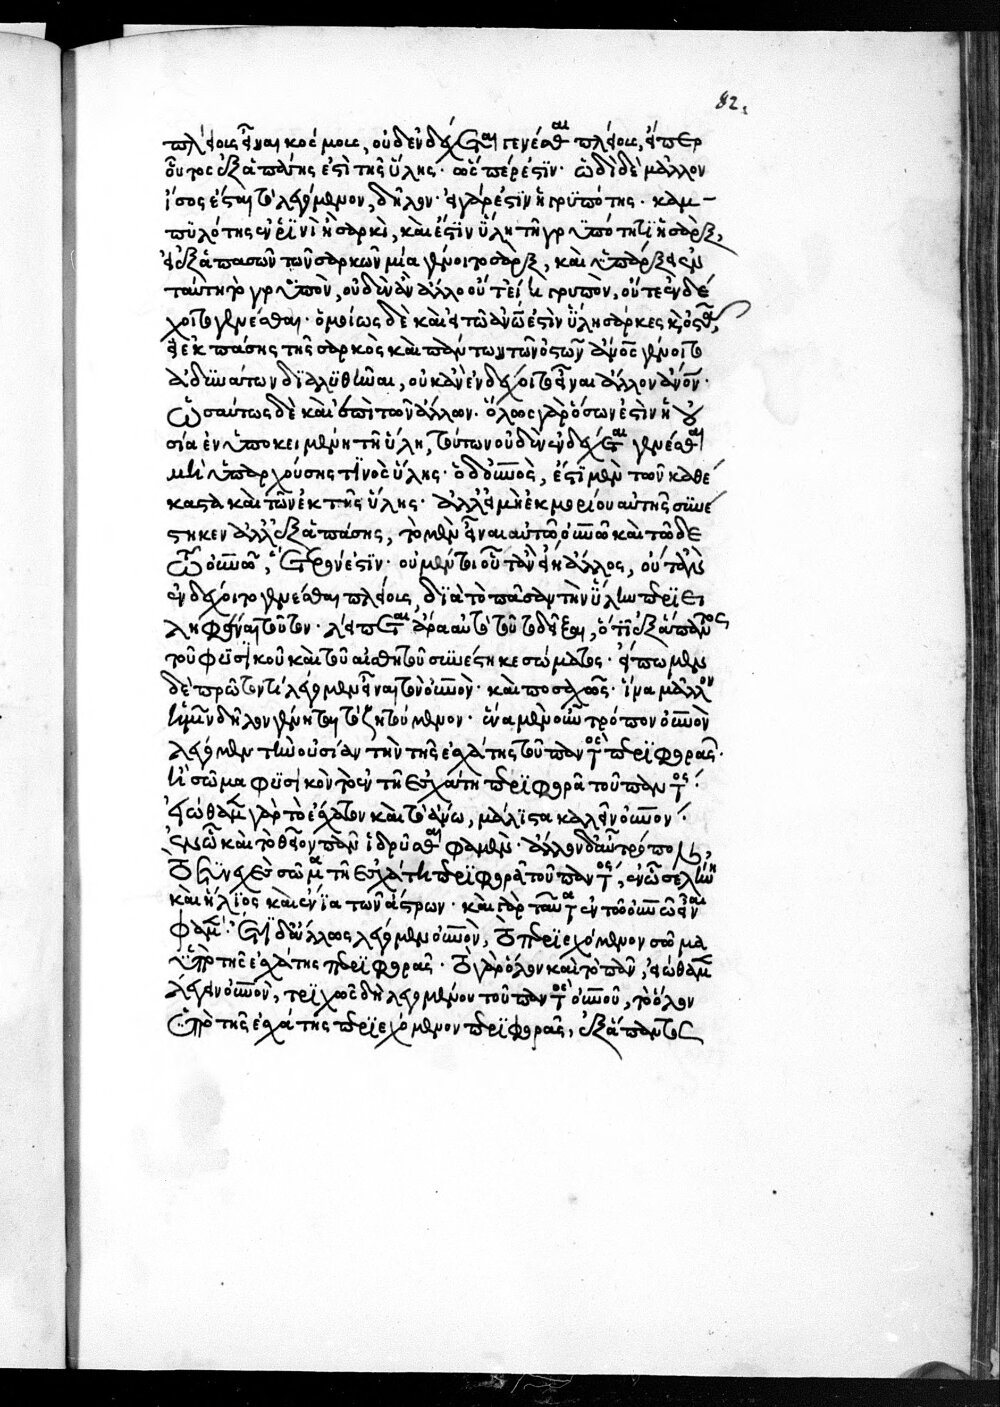 πλείους εἶναι κόσμους, οὐδ' ἐνδέχεται γενέσθαι πλείους, εἴπερ
οὗτος ἐξ ἁπάσης ἐστὶ τῆς ὕλης· ὥσπερ ἐστὶν· ὡδὶ δὲ μᾶλλον
ἴσως ἔσται τὸ λεγόμενον, δῆλον· εἰ γάρ ἐστιν ἡ γρυπότης· καμ-
πυλότης ἐν ῥινὶ ἢ σαρκὶ, καὶ ἔστιν ὕλη τῇ γρυπότητι ἡ σὰρξ,
εἰ ἐξ ἁπασῶν τῶν σαρκῶν μία γένοιτο σὰρξ, καὶ ὑπάρξειεν
ταύτῃ τὸ γρυπὸν, οὐδὲν ἂν ἄλλο οὔτ' εἴη γρυπὸν, οὔτε ἐνδέ
χοιτο γενέσθαι· ὁμοίως δὲ καὶ εἰ τῷ ἀνῶ ἐστὶν ὕλη σάρκες κ ὀστᾶ,
εἰ ἐκ πάσης τῆς σαρκὸς καὶ πάντων τῶν ὀστῶν ἄνος γένοιτο
ἀδυνάτων διαλυθῆναι, οὐκ ἂν ἐνδέχοιτο εἶναι ἄλλον ἄνον·
ὡσαύτως δὲ καὶ ἐπὶ τῶν ἄλλων· ὅλως γὰρ ὅσων ἐστὶν ἡ οὐ
σία ἐν ὑποκειμένῃ τῇ ὕλῃ, τούτων οὐδὲν ἐνδέχεται γενέσθαι
μὴ ὑπαρχούσης τινὸς ὕλης· ὁ δ' οὐνος, ἔστι μὲν τῶν καθέ
καστα καὶ τῶν ἐκ τῆς ὕλης· ἀλλ' εἰ μὴ ἐκ μορίου αὐτῆς συνέ
στηκεν ἀλλ' ἐξ ἁπάσης, τὸ μὲν εἶναι αὐτῷ οὐνῶ καὶ τῷδε
τῷ οὐνῶ, ἕτερόν ἐστιν· οὐ μέντοι οὔτ' ἂν εἴη ἄλλος, οὔτ' ἂν
ἐνδέχοιτο γενέσθαι πλείους, διὰ τὸ πᾶσαν τὴν ὕλην περιει
ληφέναι τοῦτον· λείπεται ἄρα αὐτὸ τοῦτο δεῖξαι, ὅτι ἐξ ἅπαντος
τοῦ φυσικοῦ καὶ τοῦ αἰσθητοῦ συνέστηκε σώματος· εἴπωμεν
δὲ πρῶτον τί λέγομεν εἶναι τὸν οὐνον· καὶ ποσαχῶς· ἵνα μᾶλλον
ἡμῖν δῆλον γένηται τὸ ζητούμενον· ἕνα μὲν οὖν τρόπον οὐνον
λέγομεν τὴν οὐσίαν τὴν τῆς ἐσχάτης τοῦ παντὸς περιφορᾶς·
ἢ σῶμα φυσικὸν τὸ ἐν τῇ ἐσχάτῃ περιφορᾷ τοῦ παντός·
εἰώθαμεν γὰρ τὸ ἔσχατον καὶ τὸ ἄνω, μάλιστα καλεῖν οὐνον·
ἐν ᾧ καὶ τὸ θεῖον πᾶν ἱδρῦσθαι φαμὲν· ἄλλον δ' αὖ τρόπον,
τὸ συνεχὲς σῶμα τῇ ἐσχάτῃ περιφορᾷ τοῦ παντός, ἐν ᾧ σελήνη
καὶ ἥλιος καὶ ἔνια τῶν ἄστρων· καὶ γὰρ ταῦτα ἐν τῷ οὐνῶ εἶναι
φαμέν· ἔτι δ' ἄλλως λέγομεν οὐνον, τὸ περιεχόμενον σῶμα
ὑπὸ τῆς ἐσχάτης περιφορᾶς· τὸ γὰρ ὅλον καὶ τὸ πᾶν, εἰώθαμεν
λέγειν οὐνον, τριχῶς δὴ λεγομένου τοῦ παντὸς οὐνοῦ, τὸ ὅλον
ὑπὸ τῆς ἐσχάτης περιεχόμενον περιφορᾶς, ἐξ ἅπαντος